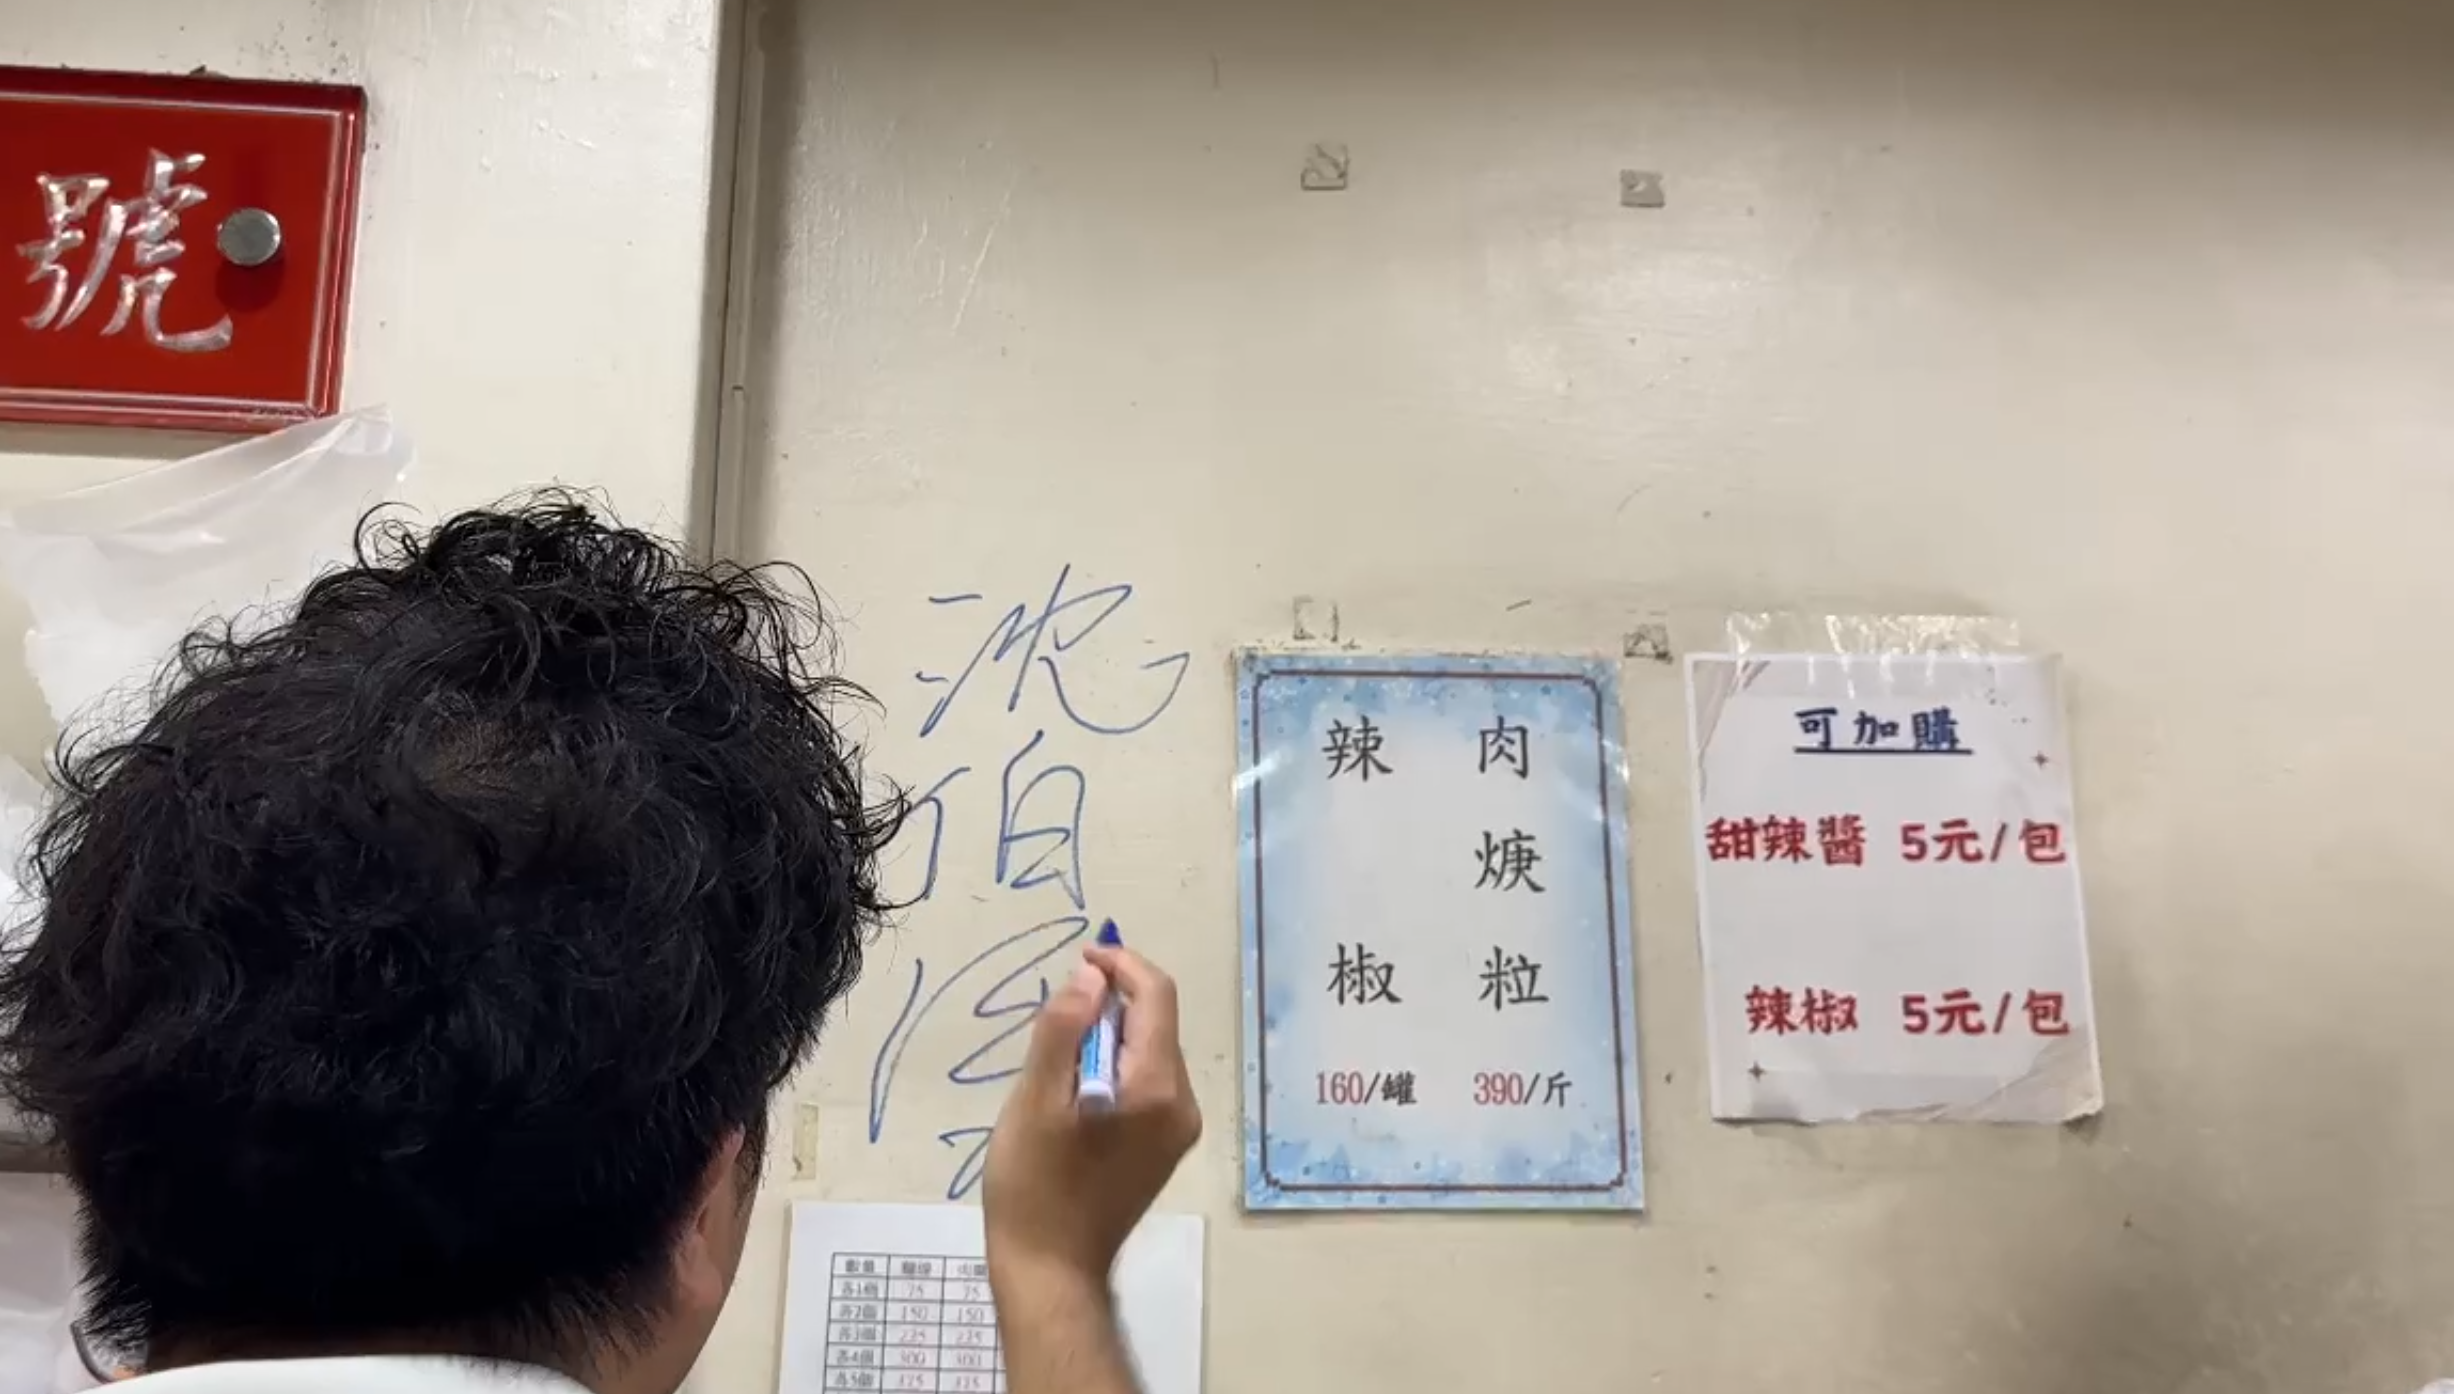 號
沈
伯
洋
辣 肉
焿
椒 粒
160/罐 390/斤
可加購
甜辣醬 5元/包
辣椒 5元/包
數量
各1個 75 75
各2個 150 150
各3個 225 225
各4個 300 300
各5個 375 375